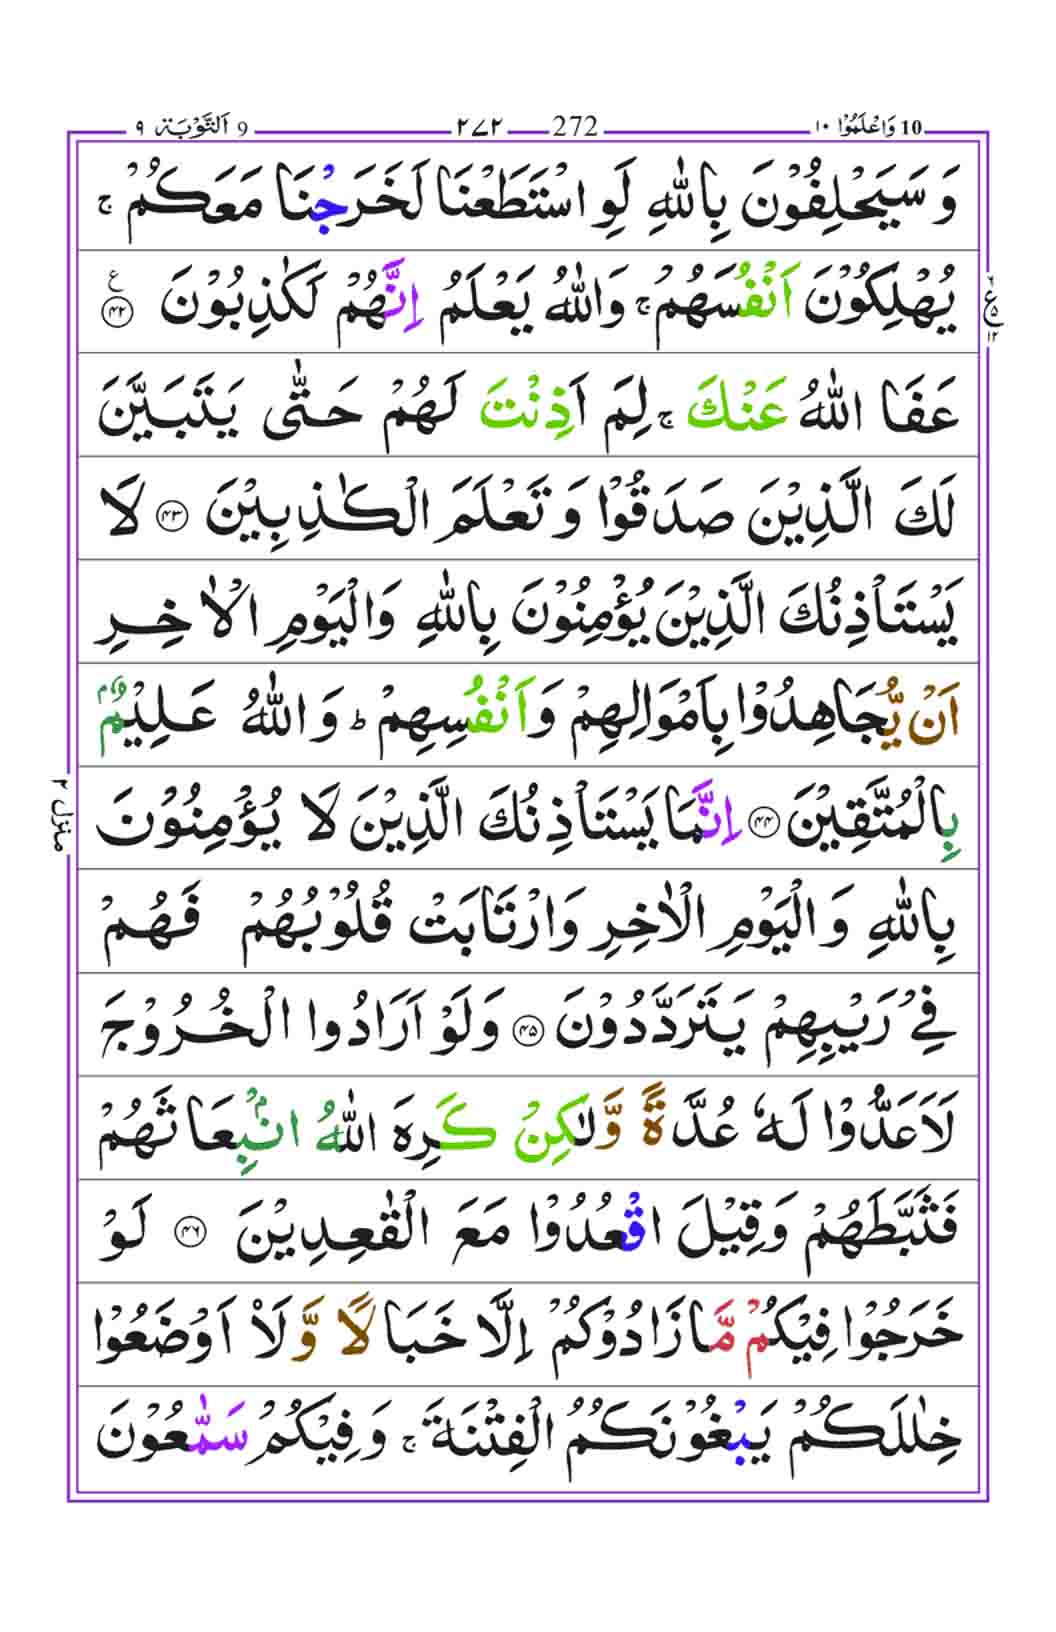 10 وَاعْلَمُوْا ١٠ 272 ٢٧٢ 9 اَلتَّوْبَة ٩
وَ سَيَحْلِفُوْنَ بِاللّٰهِ لَوِ اسْتَطَعْنَا لَخَرَجْنَا مَعَكُمْ ۚ
يُهْلِكُوْنَ اَنْفُسَهُمْ ۚ وَاللّٰهُ يَعْلَمُ اِنَّهُمْ لَكٰذِبُوْنَ ﴿۴۲﴾ ع
ع ۵ ۱۲
عَفَا اللّٰهُ عَنْكَ ۚ لِمَ اَذِنْتَ لَهُمْ حَتّٰى يَتَبَيَّنَ
لَكَ الَّذِيْنَ صَدَقُوْا وَ تَعْلَمَ الْكٰذِبِيْنَ ﴿۴۳﴾ لَا
يَسْتَاْذِنُكَ الَّذِيْنَ يُؤْمِنُوْنَ بِاللّٰهِ وَالْيَوْمِ الْاٰخِرِ
اَنْ يُّجَاهِدُوْا بِاَمْوَالِهِمْ وَاَنْفُسِهِمْ ؕ وَ اللّٰهُ عَلِيْمٌۢ
بِالْمُتَّقِيْنَ ﴿۴۴﴾ اِنَّمَا يَسْتَاْذِنُكَ الَّذِيْنَ لَا يُؤْمِنُوْنَ
منزل ۲
بِاللّٰهِ وَ الْيَوْمِ الْاٰخِرِ وَارْتَابَتْ قُلُوْبُهُمْ فَهُمْ
فِيْ رَيْبِهِمْ يَتَرَدَّدُوْنَ ﴿۴۵﴾ وَلَوْ اَرَادُوا الْخُرُوْجَ
لَاَعَدُّوْا لَهٗ عُدَّةً وَّلٰكِنْ كَرِهَ اللّٰهُ انْۢبِعَاثَهُمْ
فَثَبَّطَهُمْ وَقِيْلَ اقْعُدُوْا مَعَ الْقٰعِدِيْنَ ﴿۴۶﴾ لَوْ
خَرَجُوْا فِيْكُمْ مَّا زَادُوْكُمْ اِلَّا خَبَالًا وَّلَا۟اَوْضَعُوْا
خِلٰلَكُمْ يَبْغُوْنَكُمُ الْفِتْنَةَ ۚ وَفِيْكُمْ سَمّٰعُوْنَ